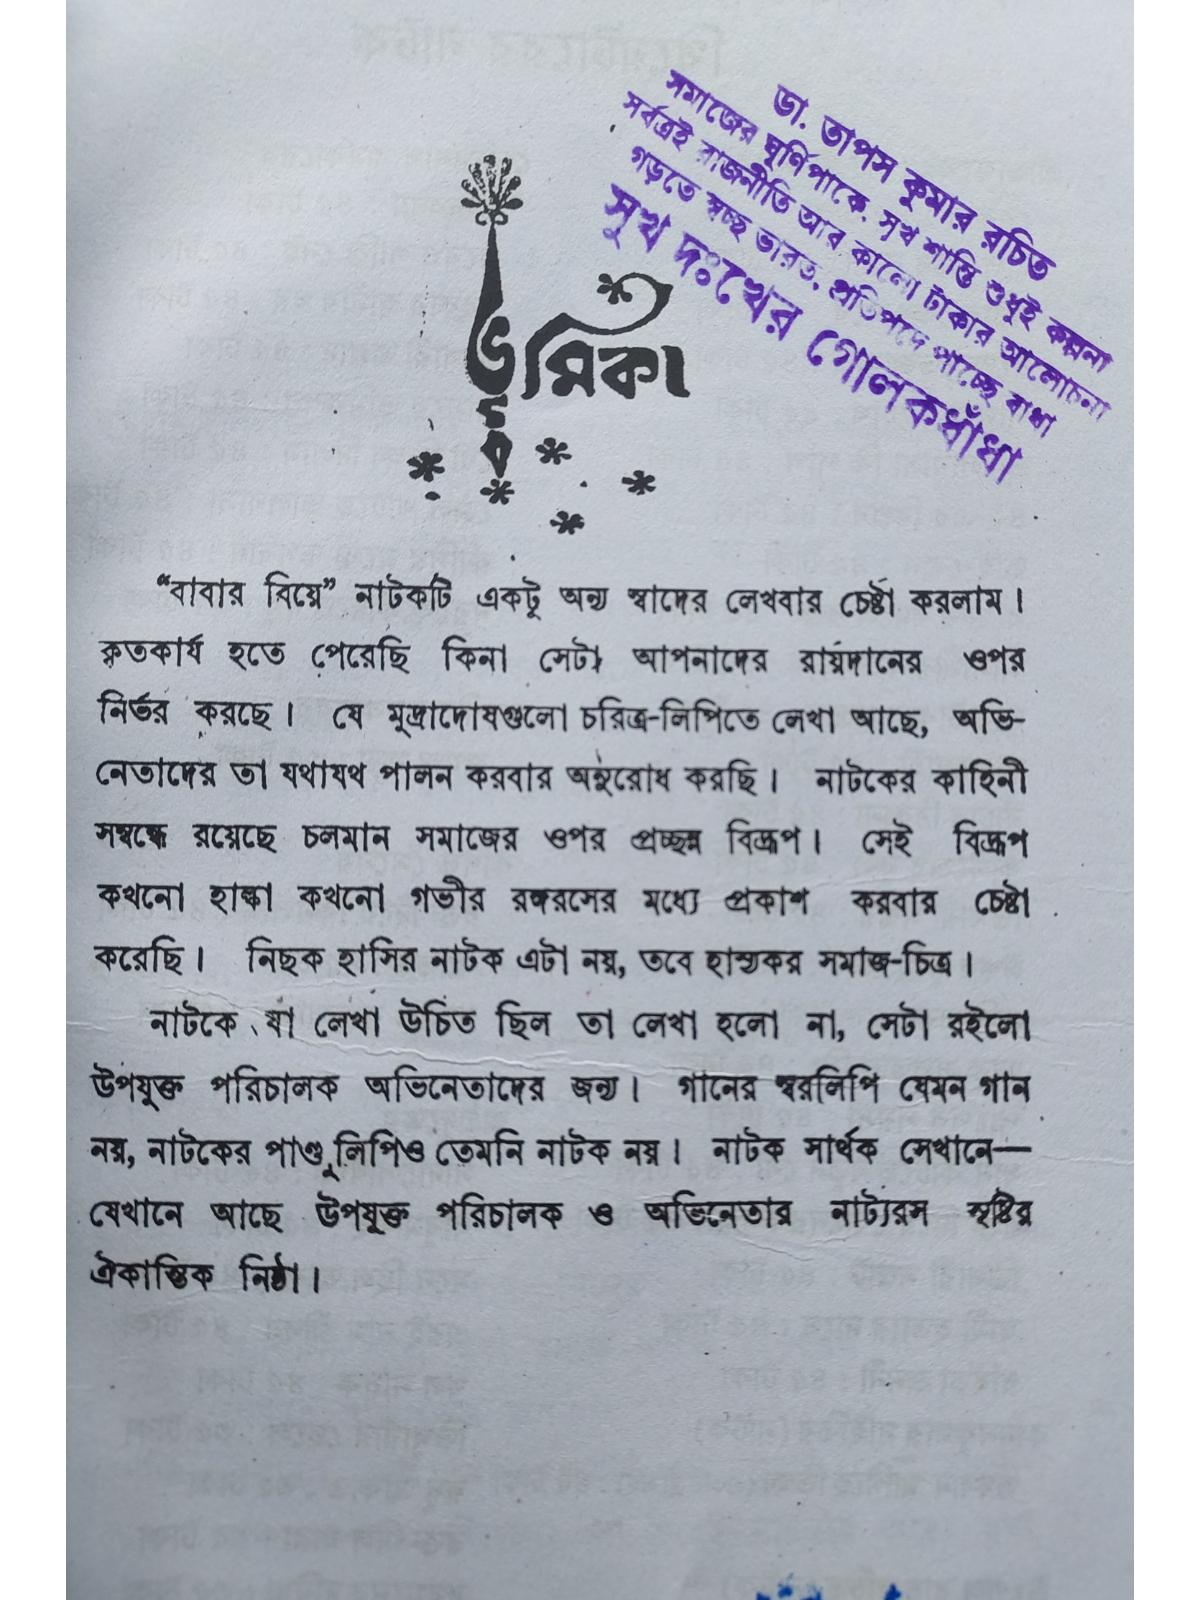 ডা. তাপস কুমার রচিত
সমাজের ঘূর্ণিপাকে, সুখ শান্তি শুধুই কল্পনা
সর্বত্রই রাজনীতি আর কালো টাকার আলোচনা
গড়তে স্বচ্ছ ভারত, প্রতিপদে পাচ্ছে বাধা
সুখ দঃখের গোলকধাঁধা
ভূমিকা
“বাবার বিয়ে” নাটকটি একটু অন্য স্বাদের লেখবার চেষ্টা করলাম।
কৃতকার্য হতে পেরেছি কিনা সেটা আপনাদের রায়দানের ওপর
নির্ভর করছে। যে মুদ্রাদোষগুলো চরিত্র-লিপিতে লেখা আছে, অভি-
নেতাদের তা যথাযথ পালন করবার অনুরোধ করছি। নাটকের কাহিনী
সম্বন্ধে রয়েছে চলমান সমাজের ওপর প্রচ্ছন্ন বিদ্রূপ। সেই বিদ্রূপ
কখনো হাল্কা কখনো গভীর রঙ্গরসের মধ্যে প্রকাশ করবার চেষ্টা
করেছি। নিছক হাসির নাটক এটা নয়, তবে হাস্যকর সমাজ-চিত্র।
নাটকে যা লেখা উচিত ছিল তা লেখা হলো না, সেটা রইলো
উপযুক্ত পরিচালক অভিনেতাদের জন্য। গানের স্বরলিপি যেমন গান
নয়, নাটকের পাণ্ডুলিপিও তেমনি নাটক নয়। নাটক সার্থক সেখানে—
যেখানে আছে উপযুক্ত পরিচালক ও অভিনেতার নাট্যরস সৃষ্টির
ঐকান্তিক নিষ্ঠা।